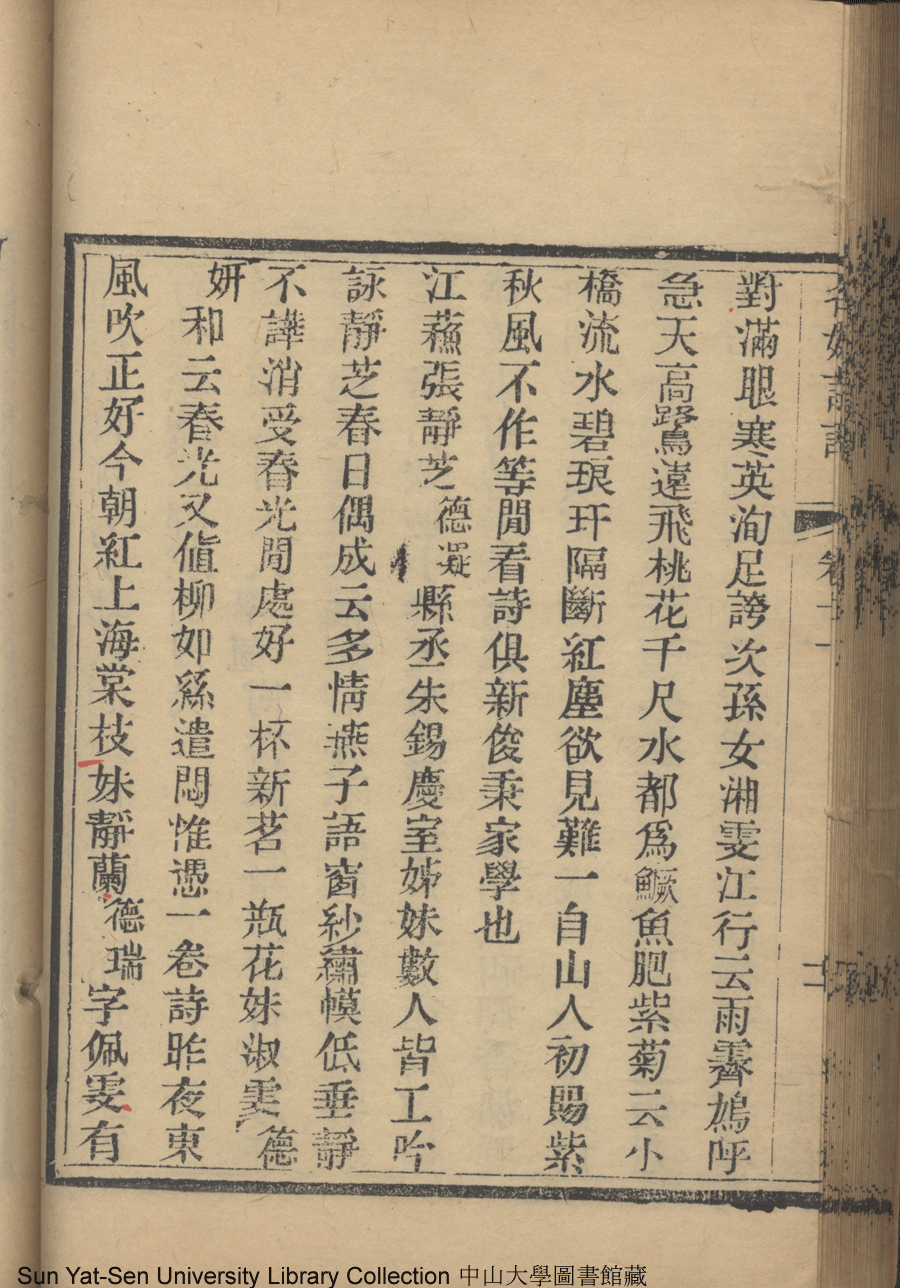 對滿眼寒英洵足誇次孫女湘雯江行云雨霽鳩呼
急天高鷺遠飛桃花千尺水都爲鱖魚肥紫菊云小
橋流水碧琅玕隔斷紅塵欲見難一自山人初賜紫
秋風不作等閒看詩俱新俊秉家學也
江蘓張靜芝德凝縣丞朱錫慶室姊妹數人皆工吟
詠靜芝春日偶成云多情燕子語窗紗繡幙低垂靜
不譁消受春光閒處好一杯新茗一瓶花妹淑雯德
妍和云春光又値柳如絲遣悶惟憑一卷詩昨夜東
風吹正好今朝紅上海棠枝妹靜蘭德瑞字佩雯有
名媛詩話 卷十一 二
Sun Yat-Sen University Library Collection 中山大學圖書館藏